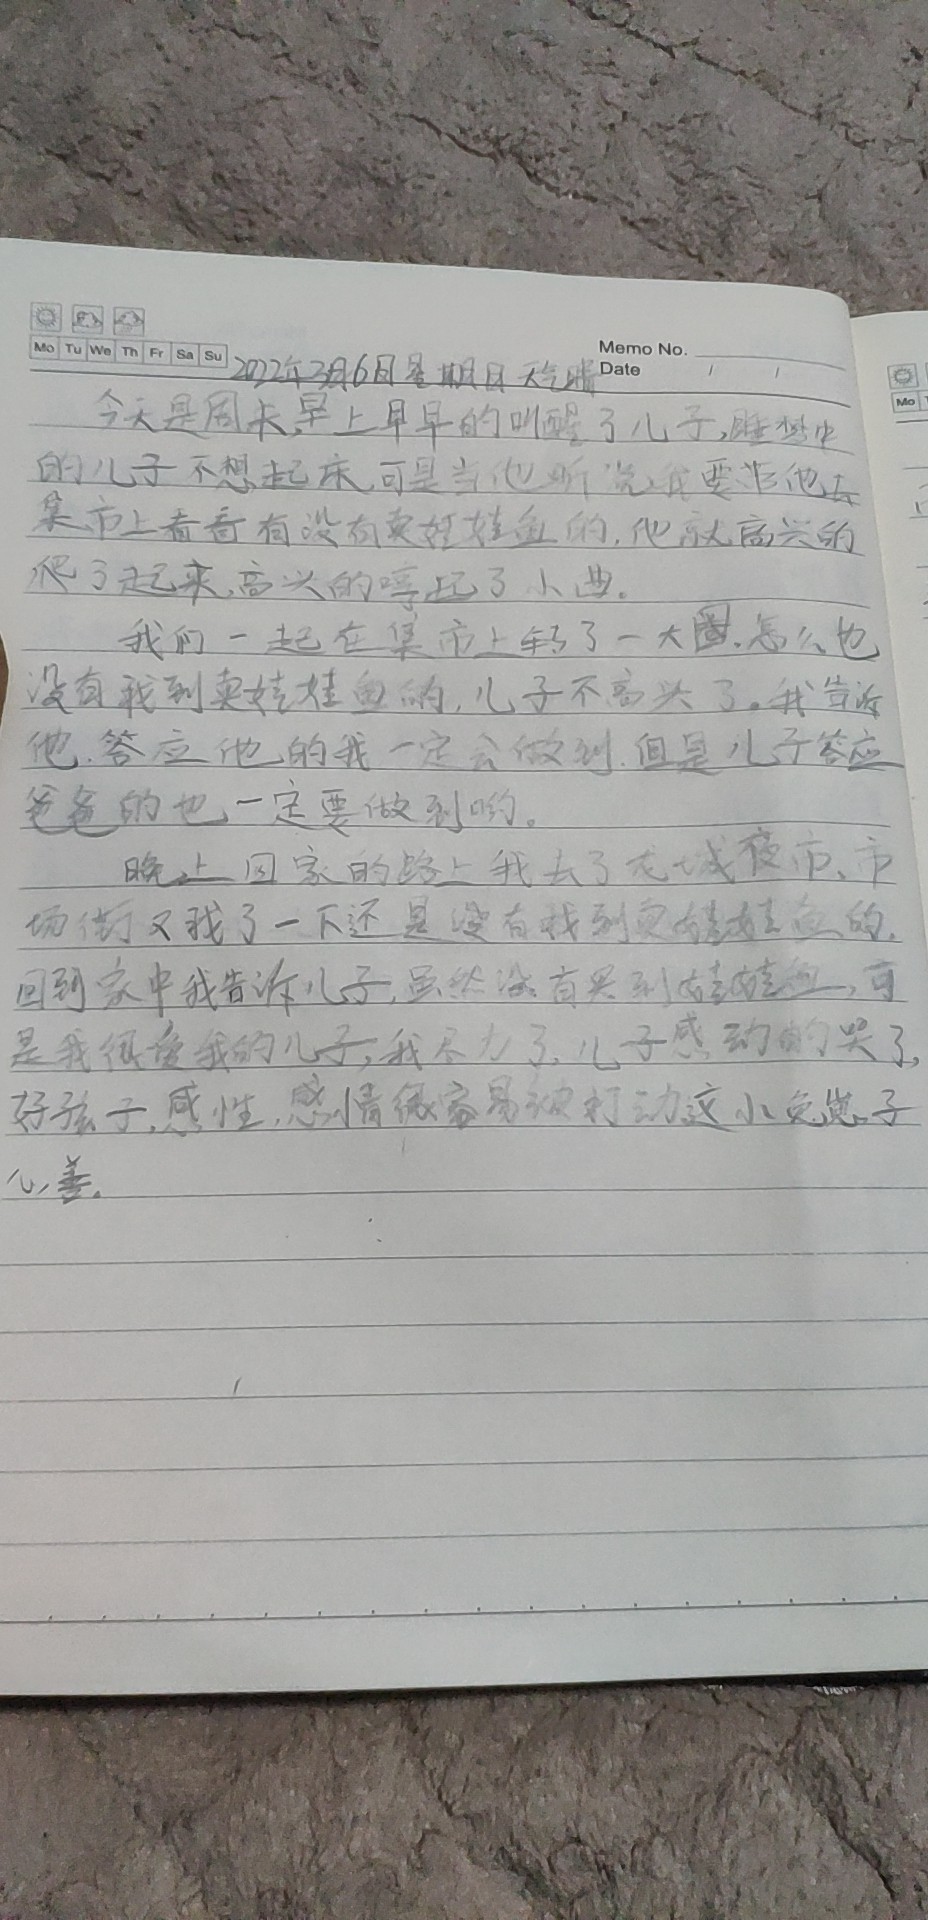 Mo Tu We Th Fr Sa Su
Memo No.
Date
2022年3月6日星期日天气晴
今天是周末,早上早早的叫醒了儿子,睡梦中
的儿子不想起床,可是当他听说我要带他去
集市上看看有没有卖娃娃鱼的,他就高兴的
爬了起来,高兴的哼起了小曲。
我们一起在集市上转了一大圈,怎么也
没有找到卖娃娃鱼的,儿子不高兴了。我告诉
他,答应他的我一定会做到,但是儿子答应
爸爸的也一定要做到哟。
晚上回家的路上我去了龙城夜市、市
场街又找了一下还是没有找到卖娃娃鱼的,
回到家中我告诉儿子,虽然没有买到娃娃鱼,可
是我很爱我的儿子,我尽力了,儿子感动的哭了,
好孩子,感性,感情很容易被打动这小兔崽子
心善。
Mo